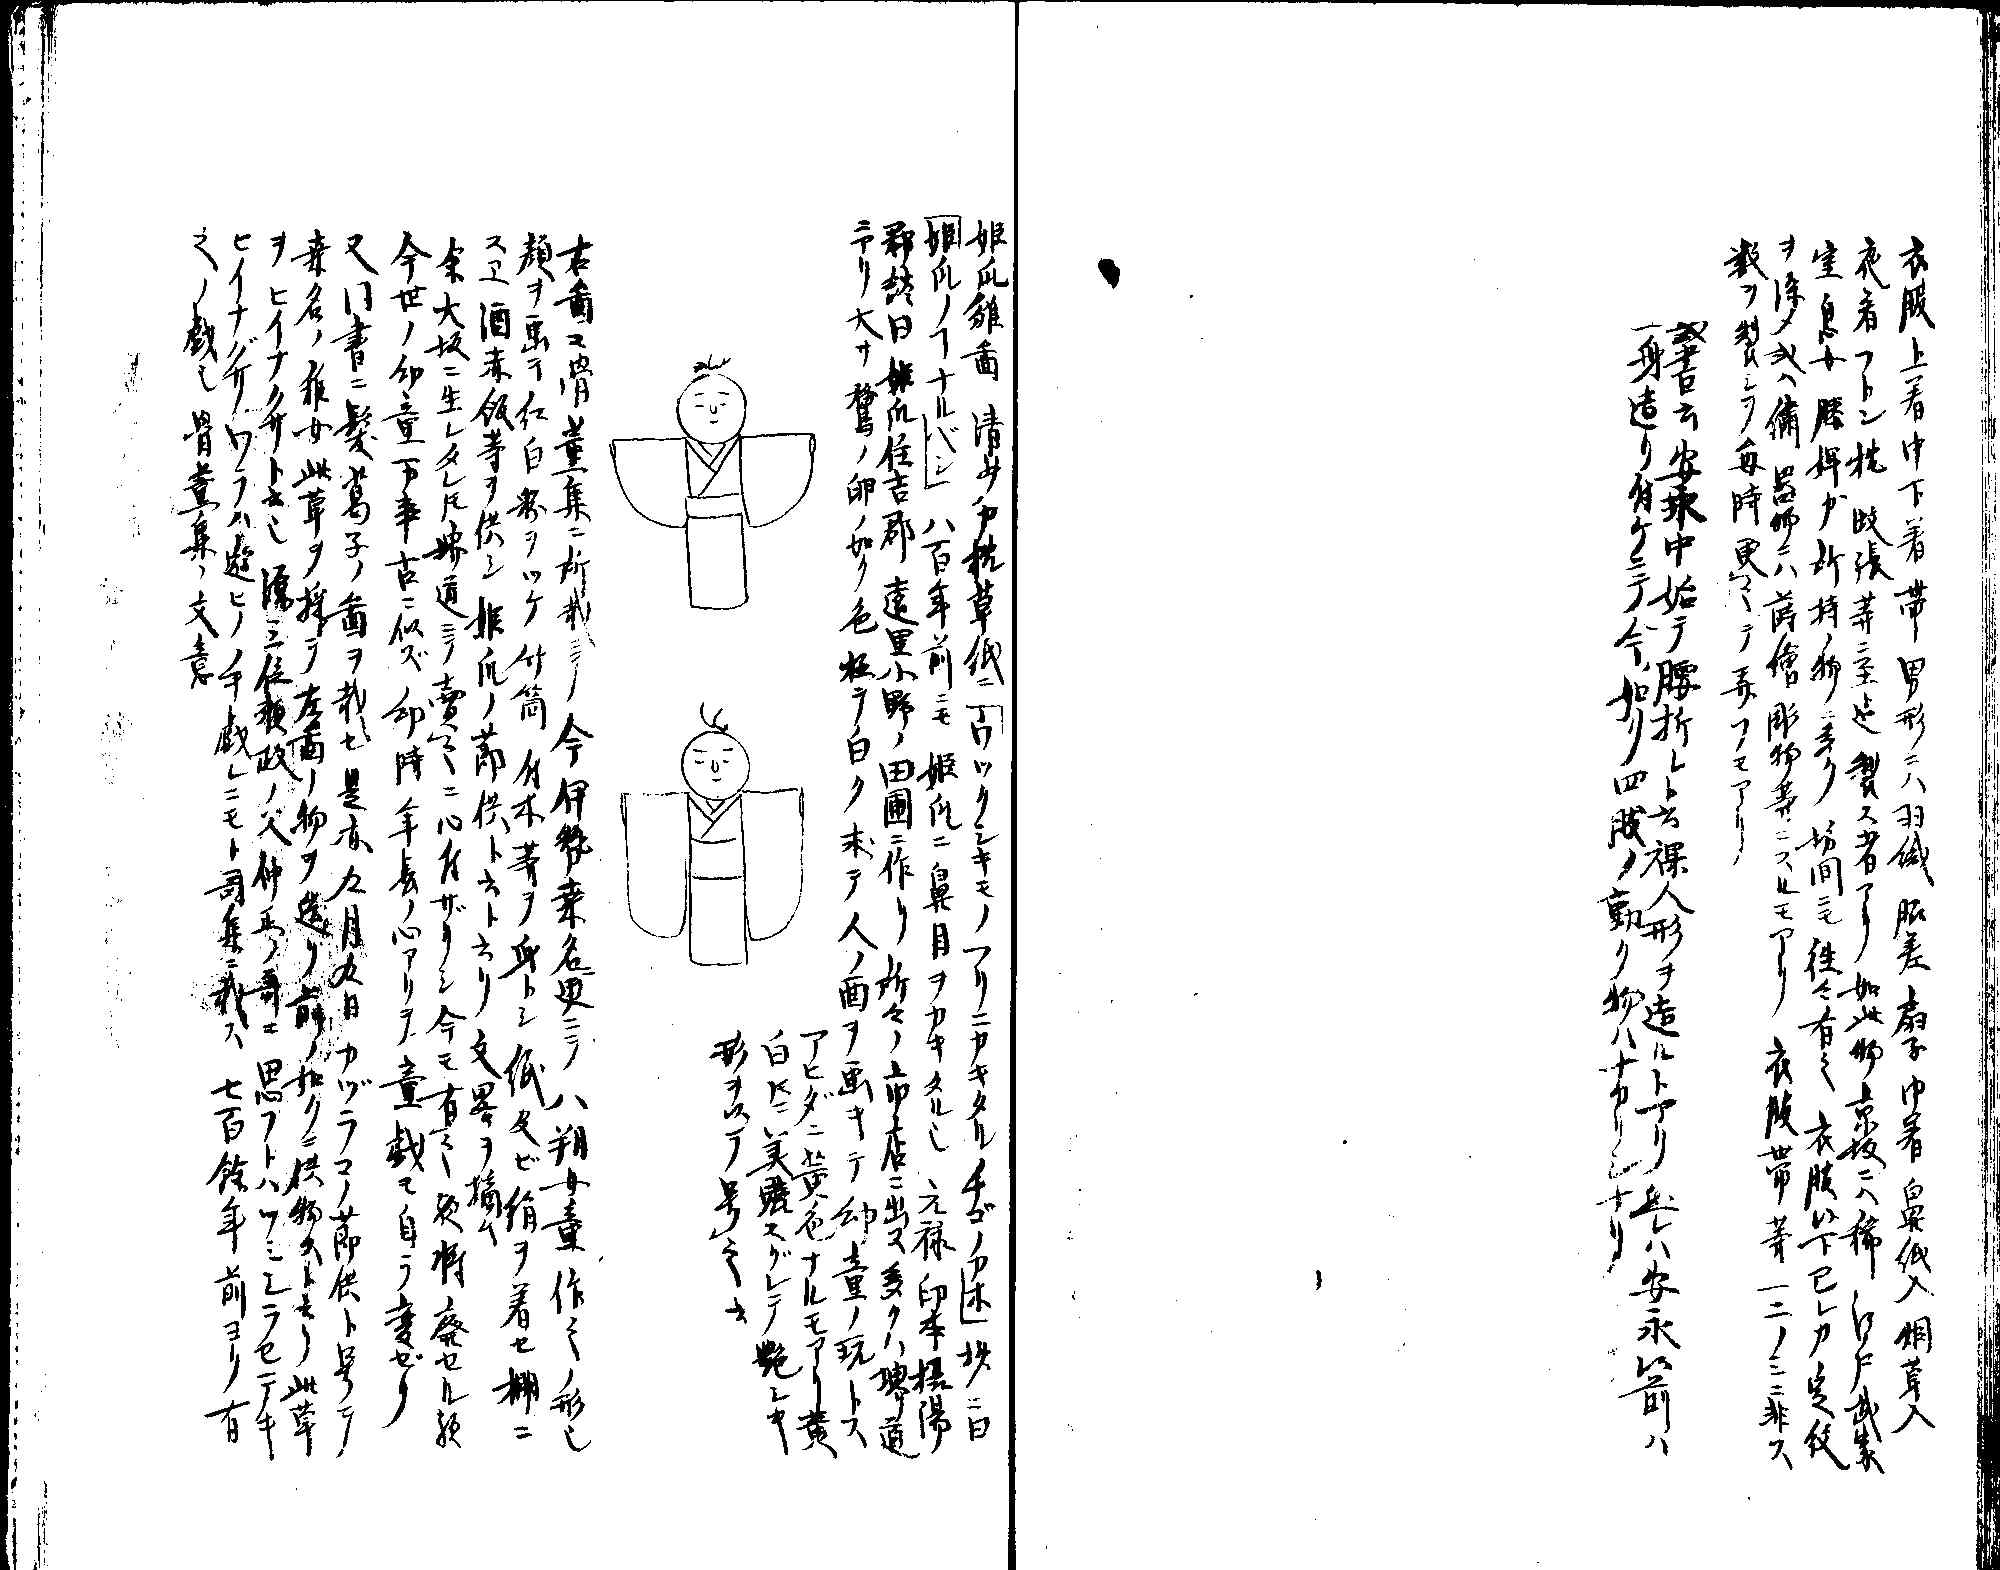 衣服上着中下着帯男形ニハ羽織脇差扇子巾着鼻紙入烟草入
夜着フトン枕蚊張等ニ至迄製ス者アリ如此物京坂ニハ稀江戸武家
室息女勝婢ガ所持ノ物ニ多ク坊間ニモ往々有之衣服以下己レガ定紋
ヲ染メ或ハ繍器物ニハ蒔繪彫物等ニスルモアリ衣服帯等一二ノミニ非ス
数ヲ製シヲ毎時更ヘテ弄フモアリ
或書云安永中始テ腰折レト云裸人形ヲ造ルトアリ然レハ安永以前ハ
一身造リ付ケニテ今ノ如ク四肢ノ動ク物ハナカリシナリ
姫瓜雛圖 清女カ枕草紙ニ「ウツクシキモノフリニカキタルチゴノカホ」抄ニ曰
「姫瓜ノコナルベシ」八百年前ニモ姫瓜ニ鼻目ヲカキタル也 元禄印本摂陽
郡談曰姫瓜住吉郡遠里小野ノ田圃ニ作リ所々ノ市店ニ出ス多クハ堺道
ニアリ大サ鵞ノ卵ノ如ク色極テ白ク求テ人ノ面ヲ画キテ幼童ノ玩トス
アヒダニ黄色ナルモアリ黄
白トモニ美麗スグレテ艶シキ
形ヲ以テ号之云
右圖ハ骨董集ニ所載ニテ今伊勢桑名邊ニテ八朔女童作之ノ形也
顔ヲ画テ紅白粉ヲツケ竹筒付木等ヲ身トシ紙及ビ絹ヲ着セ棚ニ
スヱ酒赤飯等ヲ供シ姫瓜ノ節供ト云ト云リ文畧ヲ摘ム
余大坂ニ生レタレトモ堺道ニテ賣之ニ心付ザリシ今モ有之歟将廢セル歟
今世ノ幼童万事古ニ似ズ幼時年長ノ心アリテ童戯モ自ラ変ゼリ
又同書ニ髪葛子ノ圖ヲ載セ是亦九月九日カヅラコノ節供ト号テ
桑名ノ雅女此草ヲ採テ左圖ノ物ヲ造リ前ノ如クニ供物スト云リ此草
ヲヒイナクサト云也源三位頼政ノ父仲正ノ哥ニ思フトハツミシラセテキ
ヒイナグサワラハ遊ヒノ手戯レニモト哥集ニ載ス七百餘年前ヨリ有
之ノ戯也骨董集ノ文意